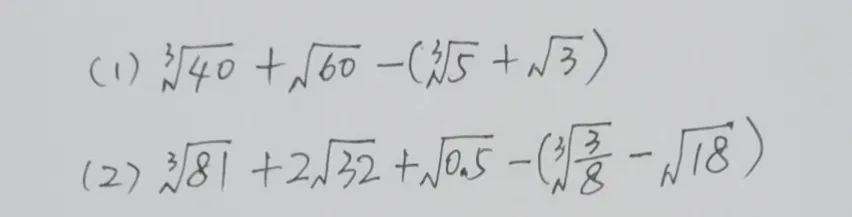 (1) ∛40 + √60 − (∛5 + √3)
(2) ∛81 + 2√32 + √0.5 − (∛(3/8) − √18)